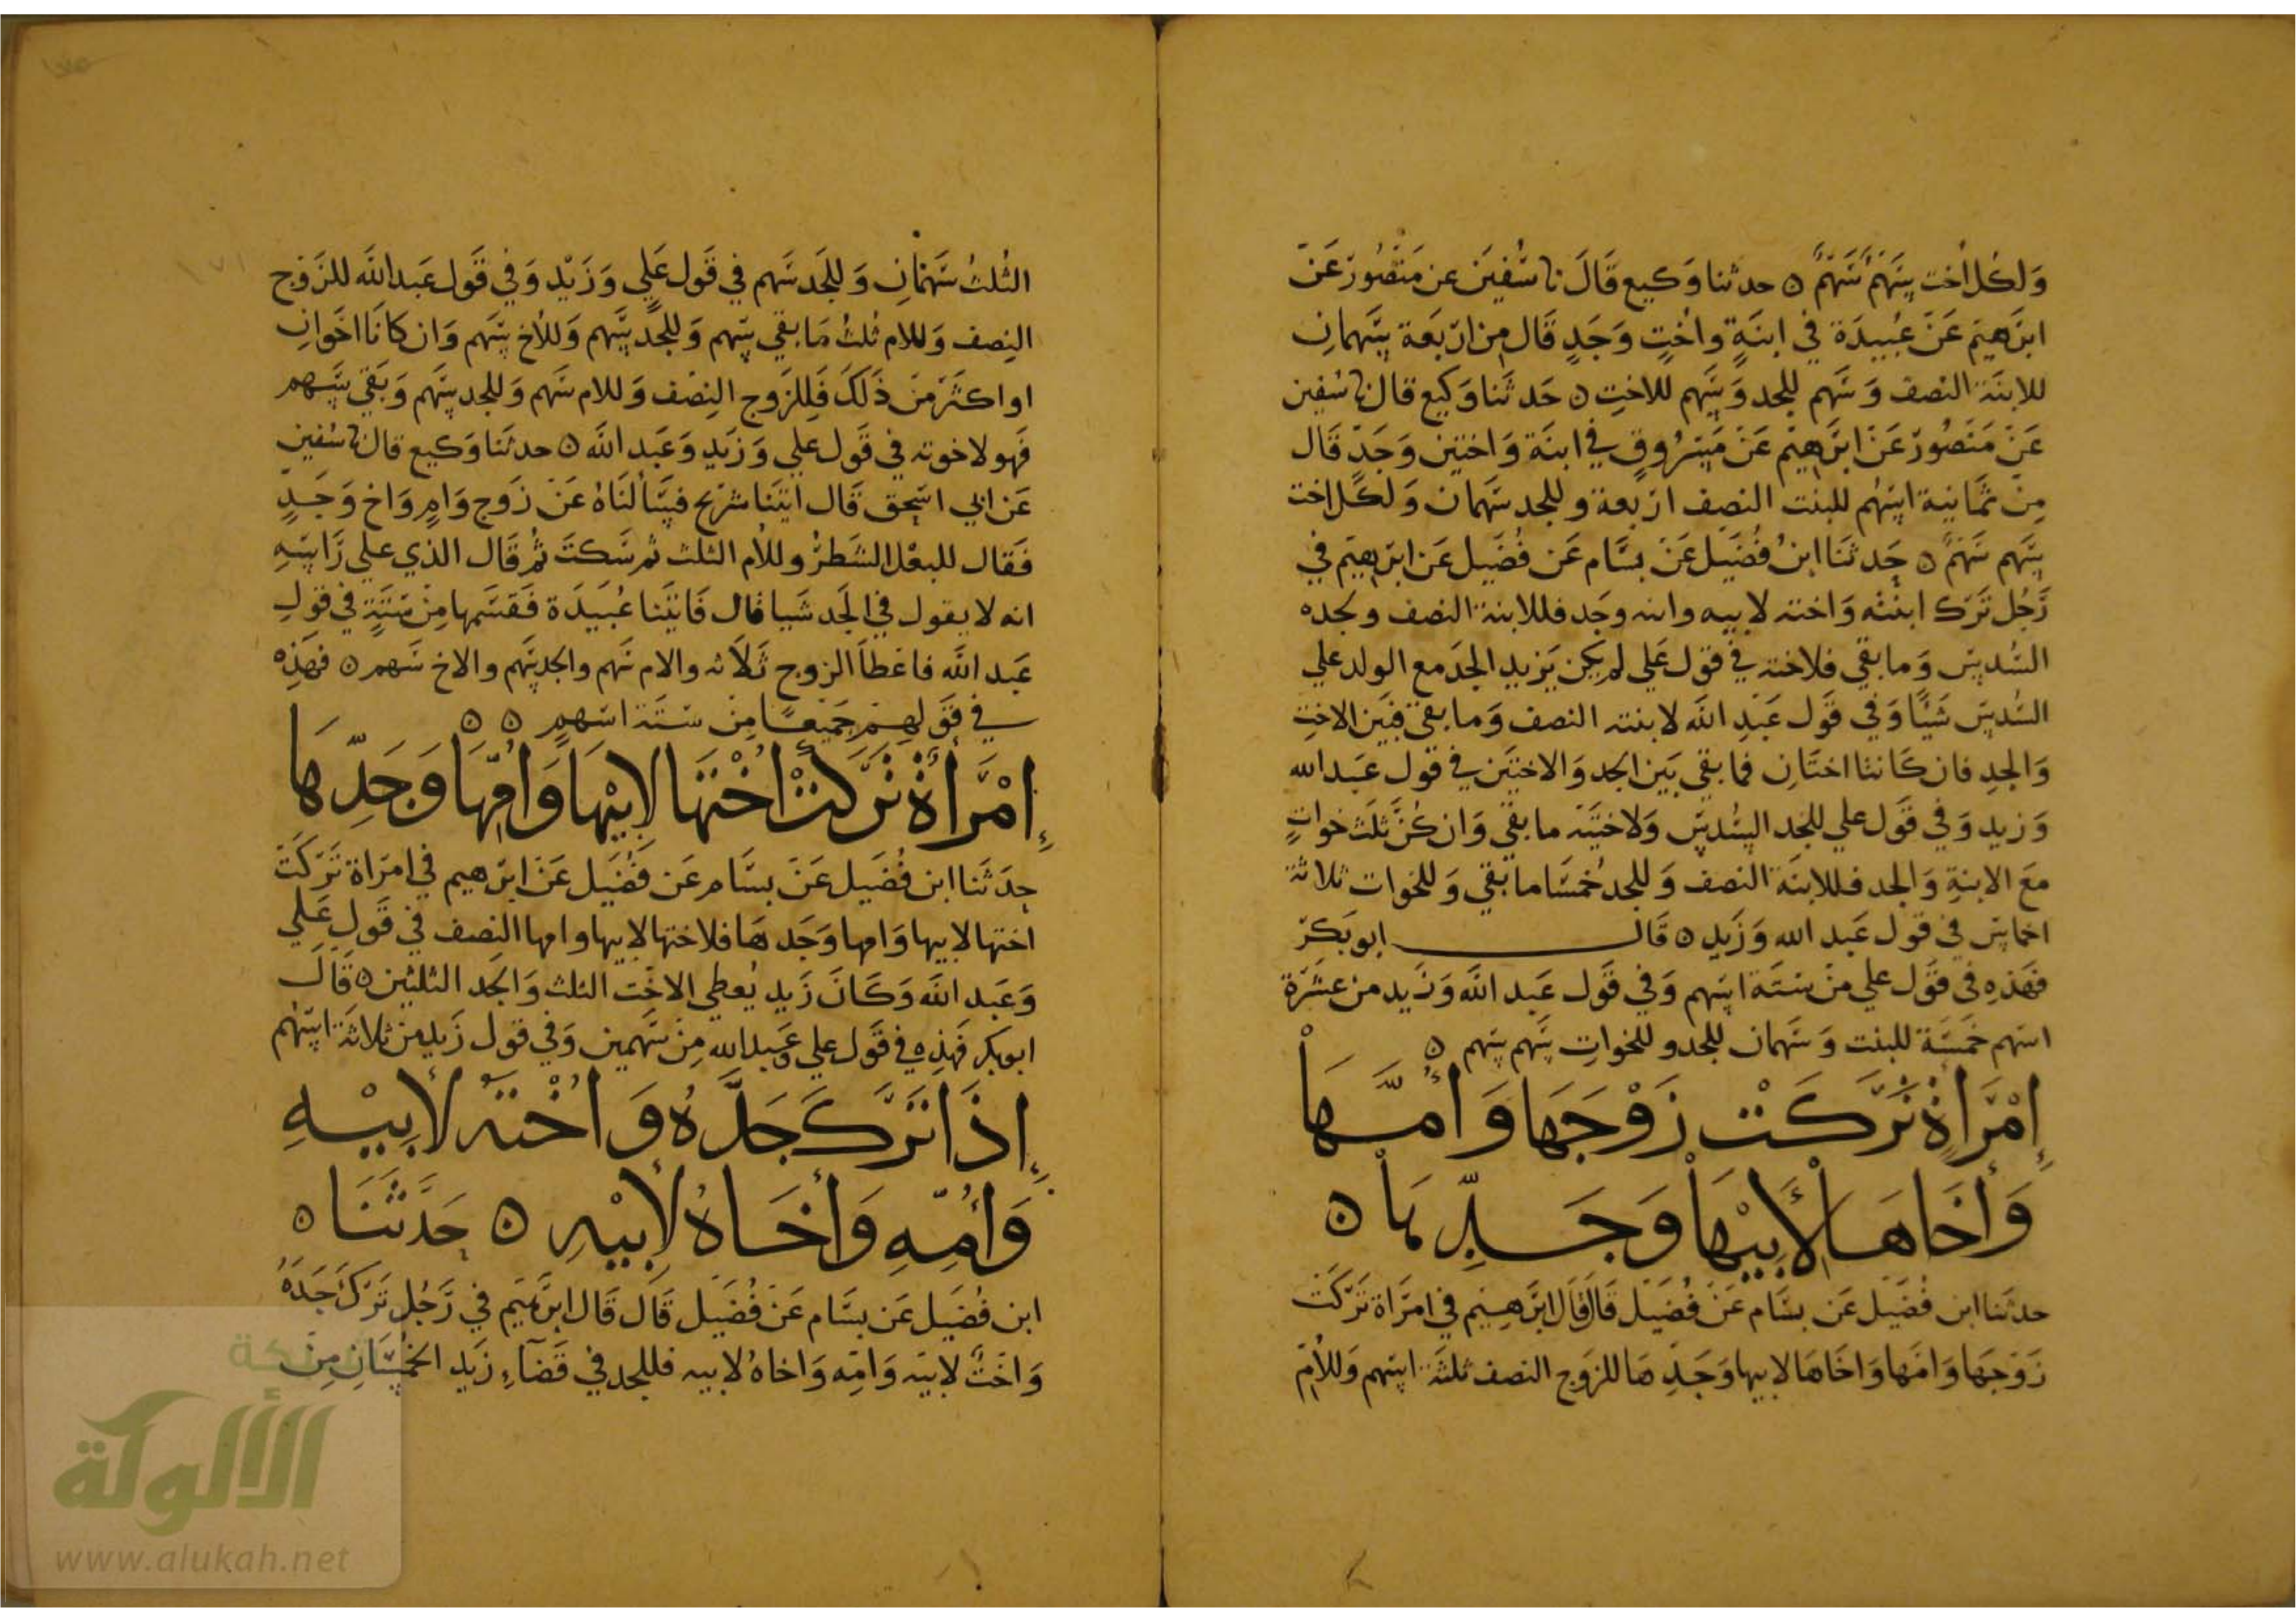 وَلكُل اُخت سَهمٌ سَهمٌ ٥ حدثنا وَكيع قَالَ نا سُفينَ عن مَنصُور عَن
ابرَهيمَ عَن عُبيدَة في ابنَةٍ واُختٍ وَجَدٍ قَال مِن اربَعَة سَهمانِ
للابنَة النصف وَسَهم للجد وَسَهم للاختِ ٥ حَدثَنا وَكيع قال نا سُفين
عَن مَنصُور عَن ابرَهيم عَن مَسرُوقٍ في ابنَة وَاختين وَجَدٍ قَال
مِن ثمَانية اسهُم للبنت النصِف اربعة وللجد سَهمان وَلكل اخت
سَهم سَهمٌ ٥ حَدثنَا ابنُ فُضَيل عَن بسَّام عَن فُضَيل عَن ابرَهيَم في
رَجُل تَرَك ابنتَه وَاخته لابيه وامه وجَد فللابنة النصف ولجده
السُدسِ وَما بقي فلاخته في قول عَلي لم يكن يَزيد الجدَ مع الولد علي
السُدسِ شَيًّا وَفي قَول عَبد اللَّه لابنته النصف وَما بقي فبَين الاختِ
وَالجدِ فان كَانتا اختَانِ فما بقي بَين الجد وَالاختَين في قول عَبد الله
وَزيد وَفي قَول علي للجد السُدسِ وَلاختيَه ما بقي وَان كُنَّ ثلث خواتٍ
مَعَ الابنةِ وَالجد فللابنَة النصف وَللجدُ خُمسَا ما بقي وَللخوات ثلاثة
اخماسِ في قول عَبد الله وَزَيد ٥ قَال ابو بَكرٍ
فهَذهِ في قَول علي من ستَة اسهم وَفي قَول عَبد اللَّه وَزَيد من عشَرة
اسهم خمسَة للبنت وَسَهمان للجد وللخواتِ سَهم سَهم ٥
إِمْرَأةٍ تَرَكَتْ زَوْجَهَا وَأُمَّهَا
وَأَخَاهَا لأَبِيْهَا وَجَدِّهَا ٥
حدثَنا ابن فُضَيل عَن بسَّام عَن فُضَيل قَال قَال ابرَهيم في امرَاة تَرَكَت
زَوَجَها وَامَها وَاخَاهَا لابيها وَجَدِهَا للزَوج النصف ثلثَة اسهم وَللأمّ
الثُلثُ سَهمَانِ وَللجَد سَهم في قَول عَلي وَزَيْد وَفي قَول عَبد اللَّه للزَوج
النِصف وَللام ثلثُ مَا بقي سَهم وَللجَد سَهم وَللأخ سَهم وَان كانَا اخَوانِ
او اكثَر مَن ذَلكَ فَللزَوج النِصْف وَللام سَهم وَللجد سَهم وَبَقي سَهم
فَهو لاخوته في قَول علي وَزَيد وَعَبد اللَّه ٥ حدثَنا وَكيع قال نا سُفين
عَن ابي اسحق قَال اتيَنا شرَيح فسَألنَاهُ عَن زَوج وَامٍ وَاخ وَجَدٍ
فَقال للبعْل الشَطرُ وللأم الثلث ثم سَكتَ ثُم قَال الذي علي رَاسَهِ
انه لا يقول في الجَد شَيا قال فَاتيَنا عُبَيدَة فَقسَمها مِن ستَةٍ في قولِ
عَبد اللَّه فاعَطا الزوج ثَلاثه والام سَهم والجد سَهم والاخ سَهم ٥ فهَذِه
في قَولهِمْ جَميعًا مِن ستَة اسهم ٥ ٥
إِمْرَأَةٌ تَرَكَتْ أُخْتَهَا لأبِيْهَا وَأُمِّهَا وَجَدِّهَا
حدَثَنا ابن فُضَيل عَن بسَّام عَن فُضَيل عَن ابرَهيم في امرَاة تَرَكَت
اختها لابيها وَامها وَجَدهَا فلاختها لابيها وامها النِصف في قَولِ عَلي
وَعَبد اللَّه وَكَانَ زَيد يُعطي الاخَت الثلث وَالجَد الثلثين ٥ قَالَ
ابو بكر فَهَذه في قَول علي وعَبد الله مِن سَهمين وَفي قول زَيد من ثلاثَة اسهُم
إِذَا تَرَكَ جَدَّهُ وَأُخْتَهُ لأَبِيْهِ
وَأُمِّهِ وَأَخَاهُ لأَبِيْهِ ٥ حَدَّثَنَا ٥
ابن فُضَيل عَن بسَّام عَن فُضَيل قَال قَال ابرَهيَم في رَجُل تَرَكَ جَدَهُ
وَاختٌ لابيَه وَامّه وَاخاهُ لابيه فللجد في قَضَآءِ زَيد الخُمسَانِ مِن
شبكة
الألوكة
www.alukah.net